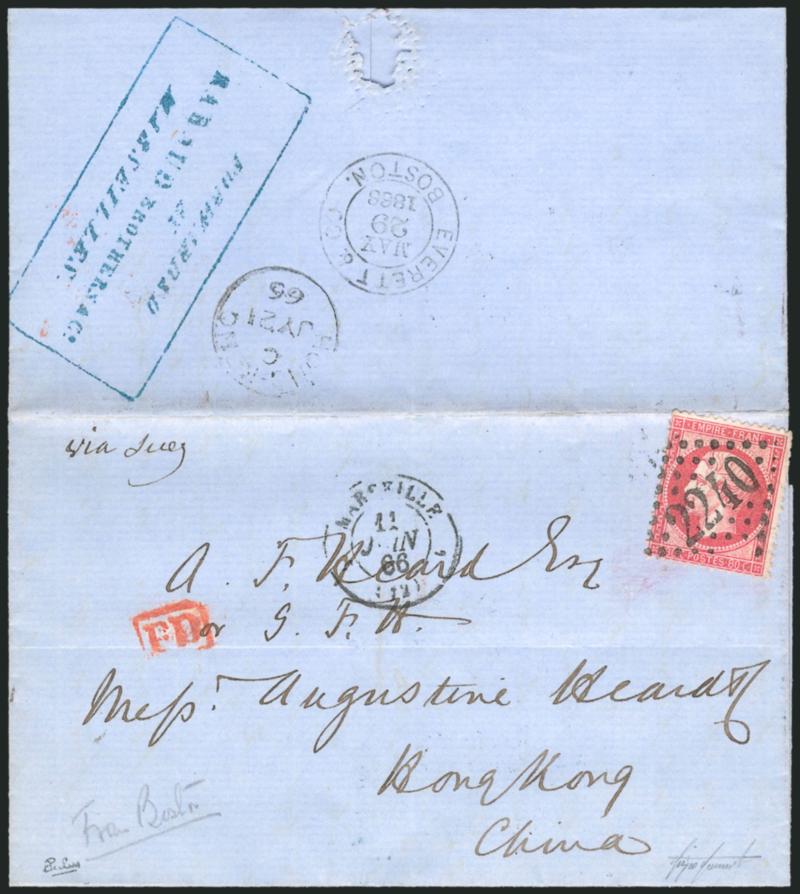 FORWARDED
BY
RABAUD BROTHERS & Cº
MARSEILLES.
EVERETT & CO
BOSTON.
MAY
29
1866
HONG KONG
C
JY 21
66
via Suez
EMPIRE FRANC
2240
POSTES 80 C
MARSEILLE
11
JUIN
66
(12)
A. F. Heard Esq
or G. F. H.
PD
Messrs. Augustine Heard &
Hong Kong
China
From Boston